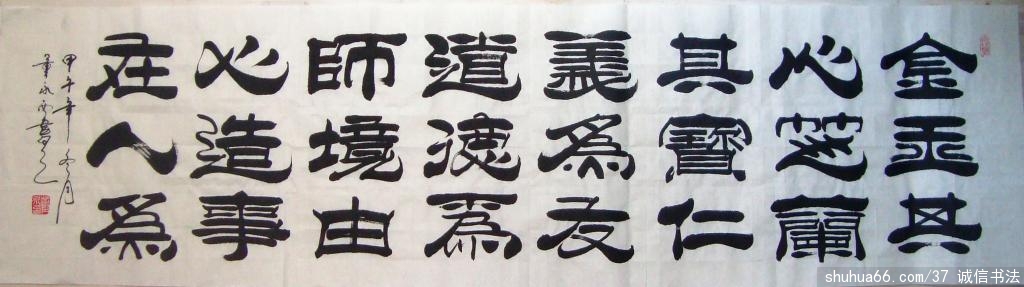 金玉其
心芝蘭
其寶仁
義爲友
道德爲
師境由
心造事
在人爲
甲午年冬月
永安書之
shuhua66.com/37 诚信书法